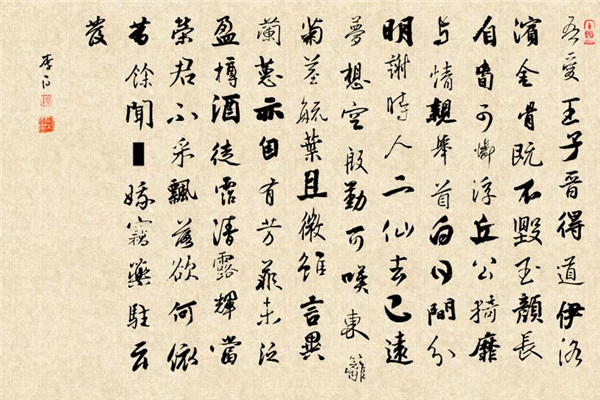 吾愛王子晉得道伊洛
濱金骨既不毀玉顏長
自春可憐浮丘公猗靡
與情親舉首白日間分
明謝時人二仙去已遠
夢想空殷勤可嘆東籬
菊莖疏葉且微雖言異
蘭蕙亦自有芳菲未泛
盈樽酒徒霑清露輝當
榮君不采飄落欲何依
昔餘聞娥竊藥駐云
發
李白